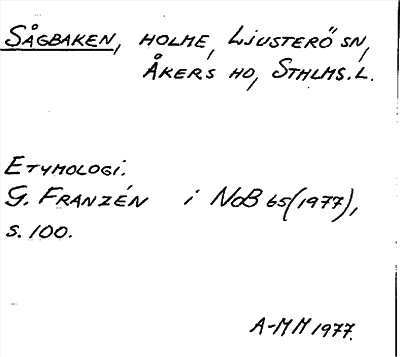 SÅGBAKEN, HOLME, LJUSTERÖ SN,
ÅKERS HD, STHLMS. L.
ETYMOLOGI.
G. FRANZÉN i NoB 65(1977),
S. 100.
A-MM 1977.